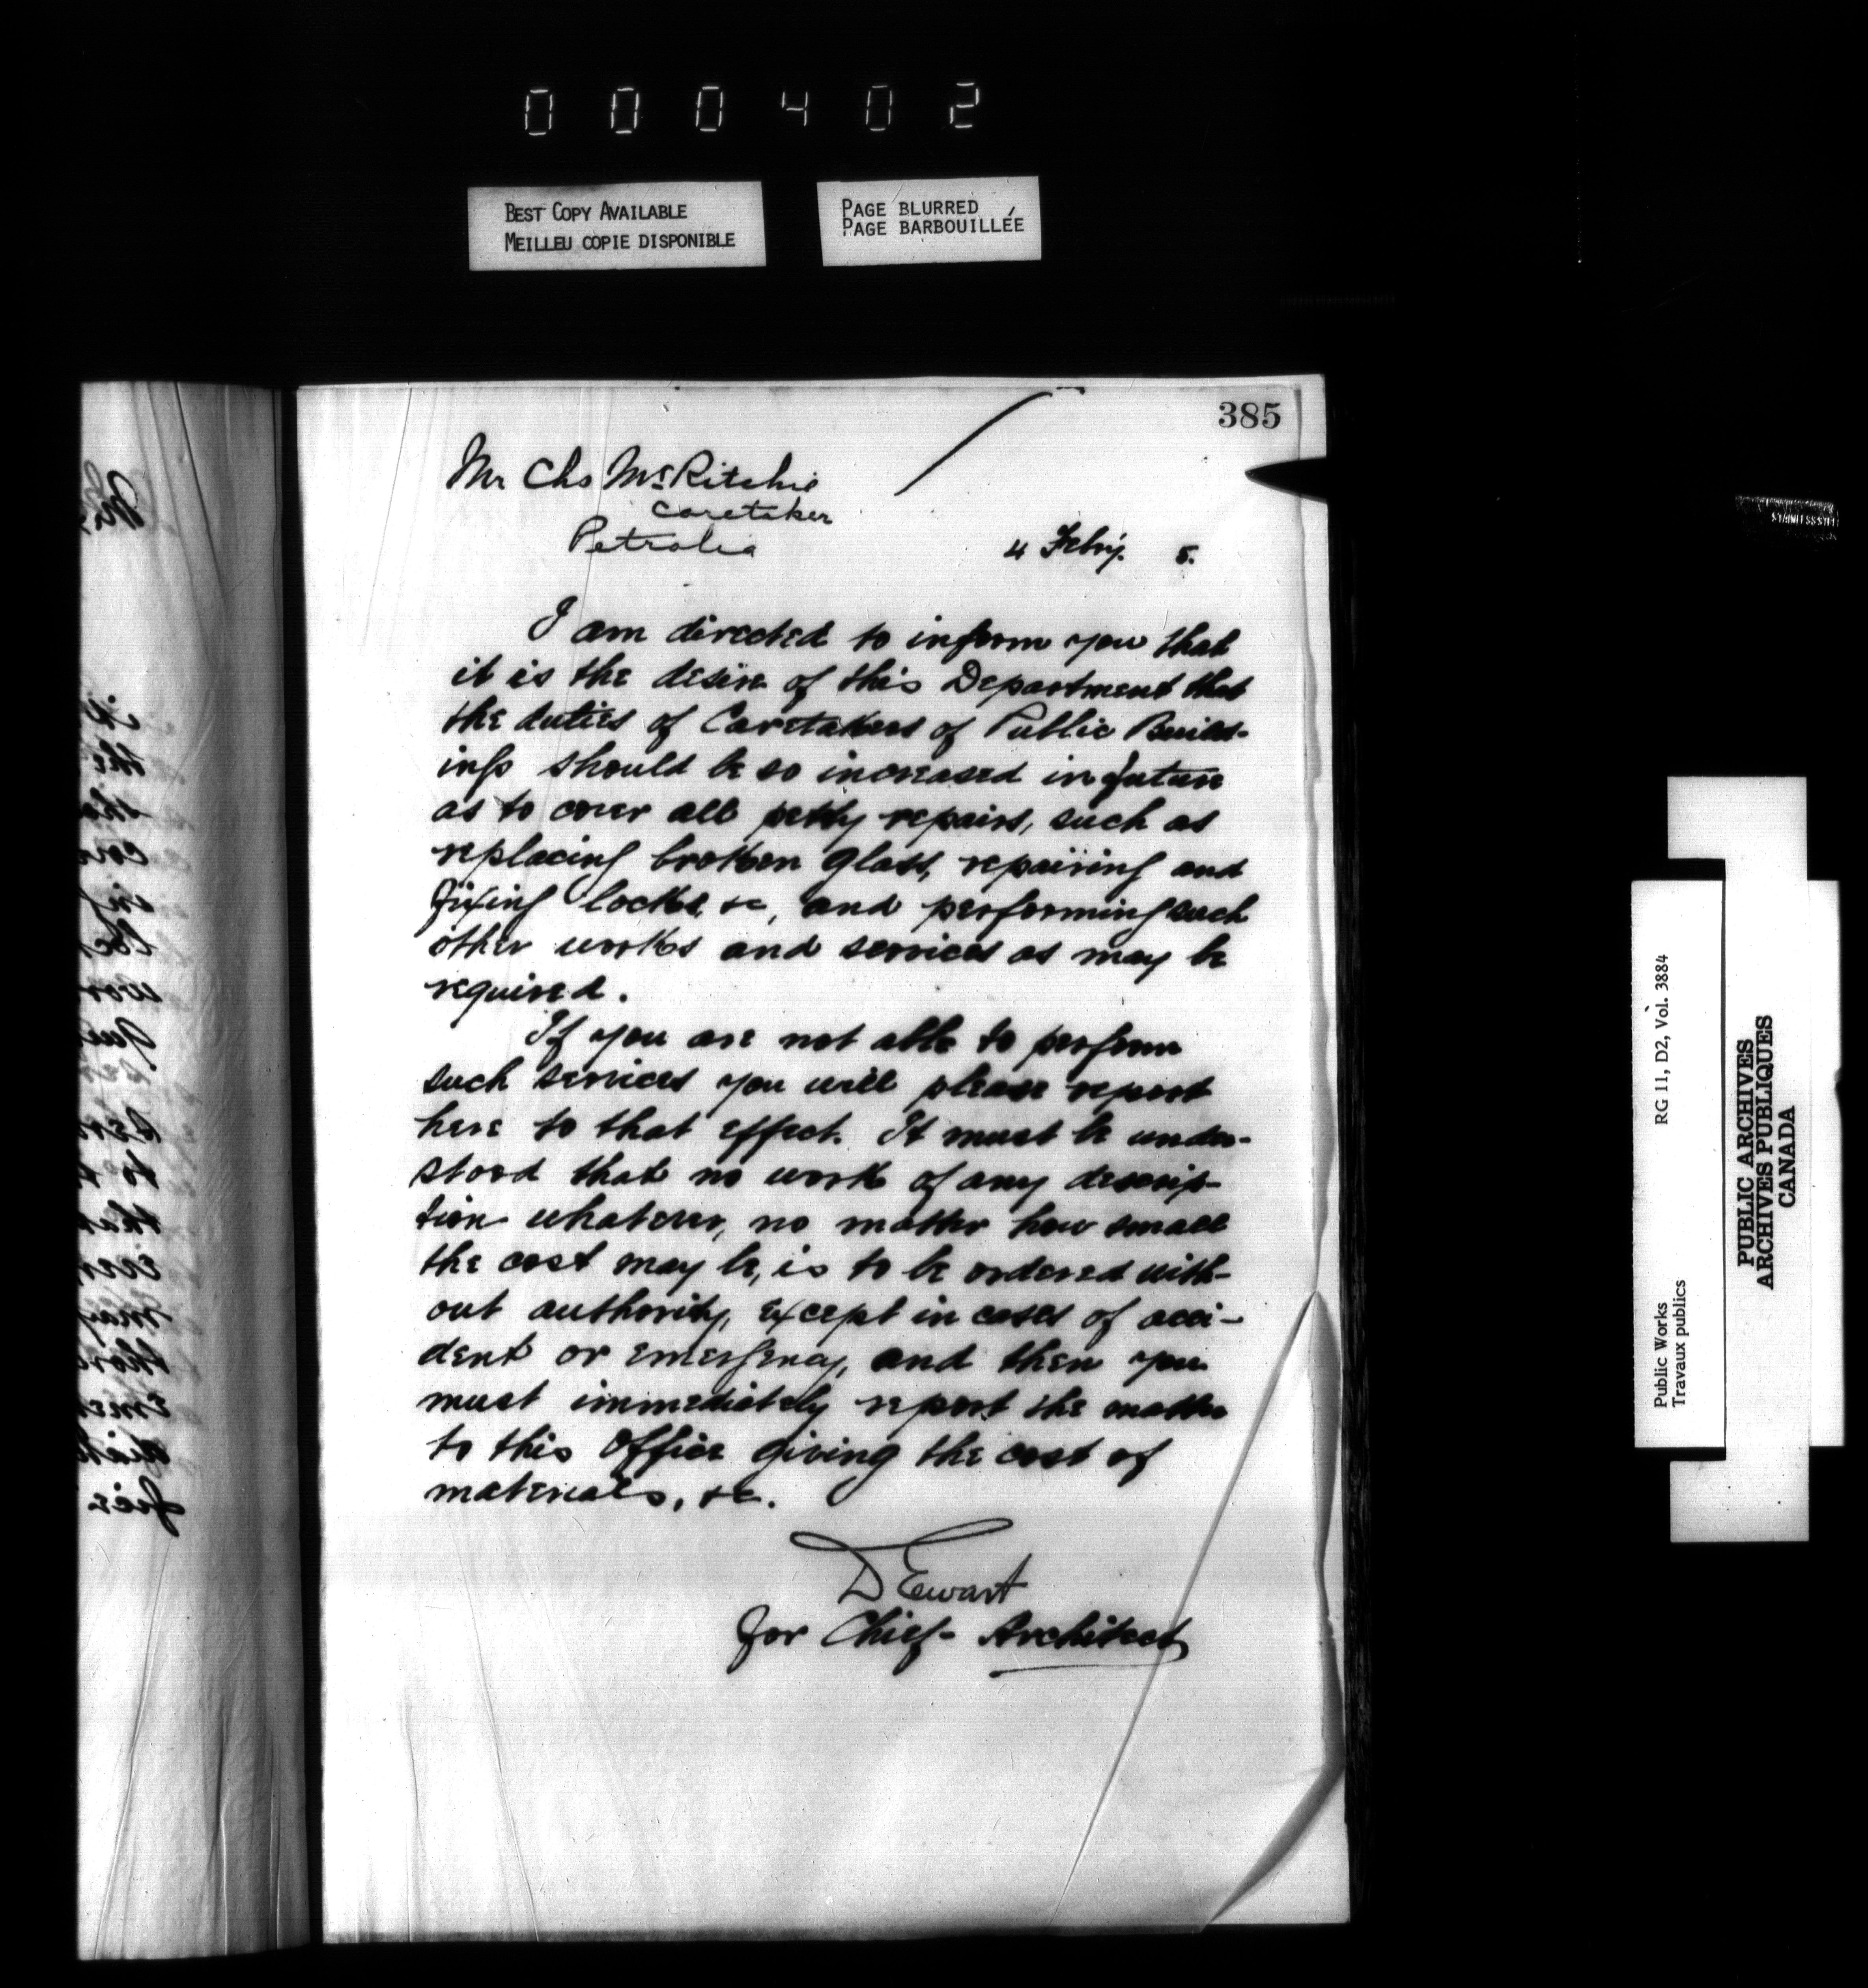 000402
BEST COPY AVAILABLE
MEILLEU COPIE DISPONIBLE
PAGE BLURRED
PAGE BARBOUILLÉE
385
Mr Chs McRitchie
Caretaker
Petrolia
4 Feby. 5.
I am directed to inform you that
it is the desire of this Department that
the duties of Caretakers of Public Build-
ings should be so increased in future
as to cover all petty repairs, such as
replacing broken glass, repairing and
fixing locks, &c, and performing such
other works and services as may be
required.
If you are not able to perform
such services you will please report
here to that effect. It must be under-
stood that no work of any descrip-
tion whatever, no matter how small
the cost may be, is to be ordered with-
out authority, except in cases of acci-
dent or emergency, and then you
must immediately report the matter
to this Office giving the cost of
materials, &c.
D Ewart
for Chief-Architect
STAINLESS STEEL
RG 11, D2, Vol. 3884
Public Works
Travaux publics
PUBLIC ARCHIVES
ARCHIVES PUBLIQUES
CANADA